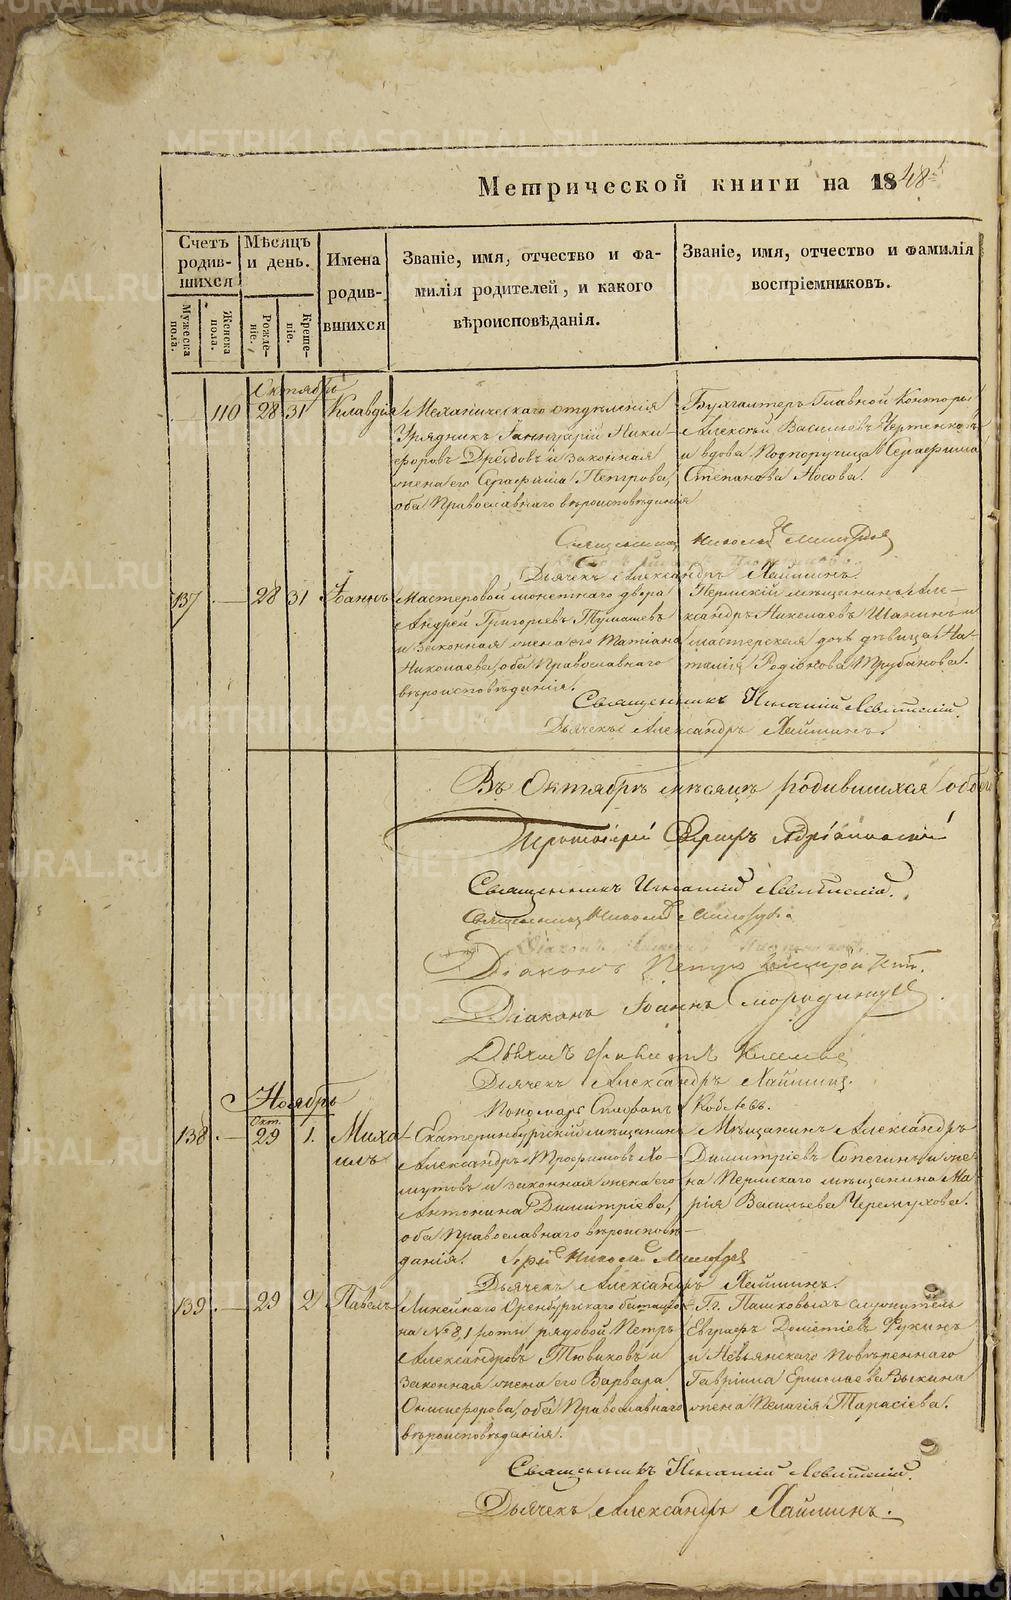 Метрической книги на 1848
Счетъ родив- шихся
Мѣсяцъ и день.
Имена родив- вшихся
Званіе, имя, отчество и фа-
милія родителей, и какого
вѣроисповѣданія.
Званіе, имя, отчество и фамилія
воспріемниковъ.
Мужеска пола.
Женска пола.
Рожде- ніе.
Креще- ніе.
Октябрь
110 28 31 Клавдія
Механическаго отдѣленія
Урядникъ Іаннуарій Ники-
форовъ и законная
жена его Серафима Петрова,
оба Православнаго вѣроисповѣданія
Бухгалтеръ Главной Конторы
Алексѣй Васильевъ Чертенковъ
и вдова Подпоручица Серафима
Степанова Носова.
Священникъ Николай
Дьячекъ Александръ Хаймин.
137 — 28 31 Іоаннъ
Мастеровой монетнаго двора
Андрей Григорьевъ Тумашевъ
и законная жена его Татіана
Николаева, оба Православнаго
вѣроисповѣданія.
Пермскій мѣщанинъ Але-
ксандръ Николаевъ Шанинъ и
мастерская дочь дѣвица На-
талія Родіонова Трубанова.
Священникъ Игнатій Левитскій.
Дьячекъ Александръ Хайминъ.
Въ Октябрѣ мѣсяцѣ родившихся обоего
Протоіерей
Священникъ Игнатій Левитскій.
Священникъ Николай
Діаконъ Петръ
Діаконъ Іоаннъ
Дьячекъ
Дьячекъ Александръ Хайминъ.
Пономарь Стефанъ
Ноябрь
Окт.
138 — 29 1. Миха-
илъ
Екатеринбургскій мѣщанинъ
Александръ Трофимовъ Хо-
мутовъ и законная жена его
Антонина Димитріева,
оба Православнаго вѣроисповѣ-
данія.
Мѣщанинъ Александръ
Димитріевъ Сопегинъ и же-
на Пермскаго мѣщанина Ма-
рія Васильева Черемухова.
Іерей Николай
Дьячекъ Александръ Хайминъ.
139 — 29 2 Павелъ
Линейнаго Оренбургскаго баталіо-
на № 8, 1 роты рядовой Петръ
Александровъ Тювиковъ и
законная жена его Варвара
Онисифорова, оба Православнаго
вѣроисповѣданія.
Гг. Пашковыхъ служитель
Евграфъ Фукинъ
и Невьянскаго повѣреннаго
Гавріила Ермолаева Зыкина
жена Пелагія Тарасіева.
Священникъ Игнатій Левитскій.
Дьячекъ Александръ Хайминъ.
METRIKI.GASO-URAL.RU